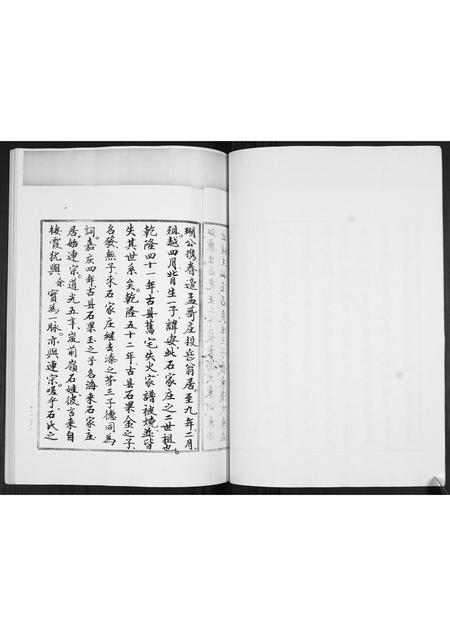 瑚公携眷造孟哥庄投岳翁居至九年二月
殂越四月背生一子諱安此石家庄之二世祖也
乾隆四十一年古县舊宅失火家譜被燒並皆
失其世系矣乾隆五十二年古县石果金之子
名發無子来石家庄継去溱之第三子德同為
詞嘉庆四年古县石果玉之子名海来石家庄
居始連宗道光五年嵐前嶺石姓彼言来自
棲霞犹與余實為一脉亦與連宗嗟乎石氏之